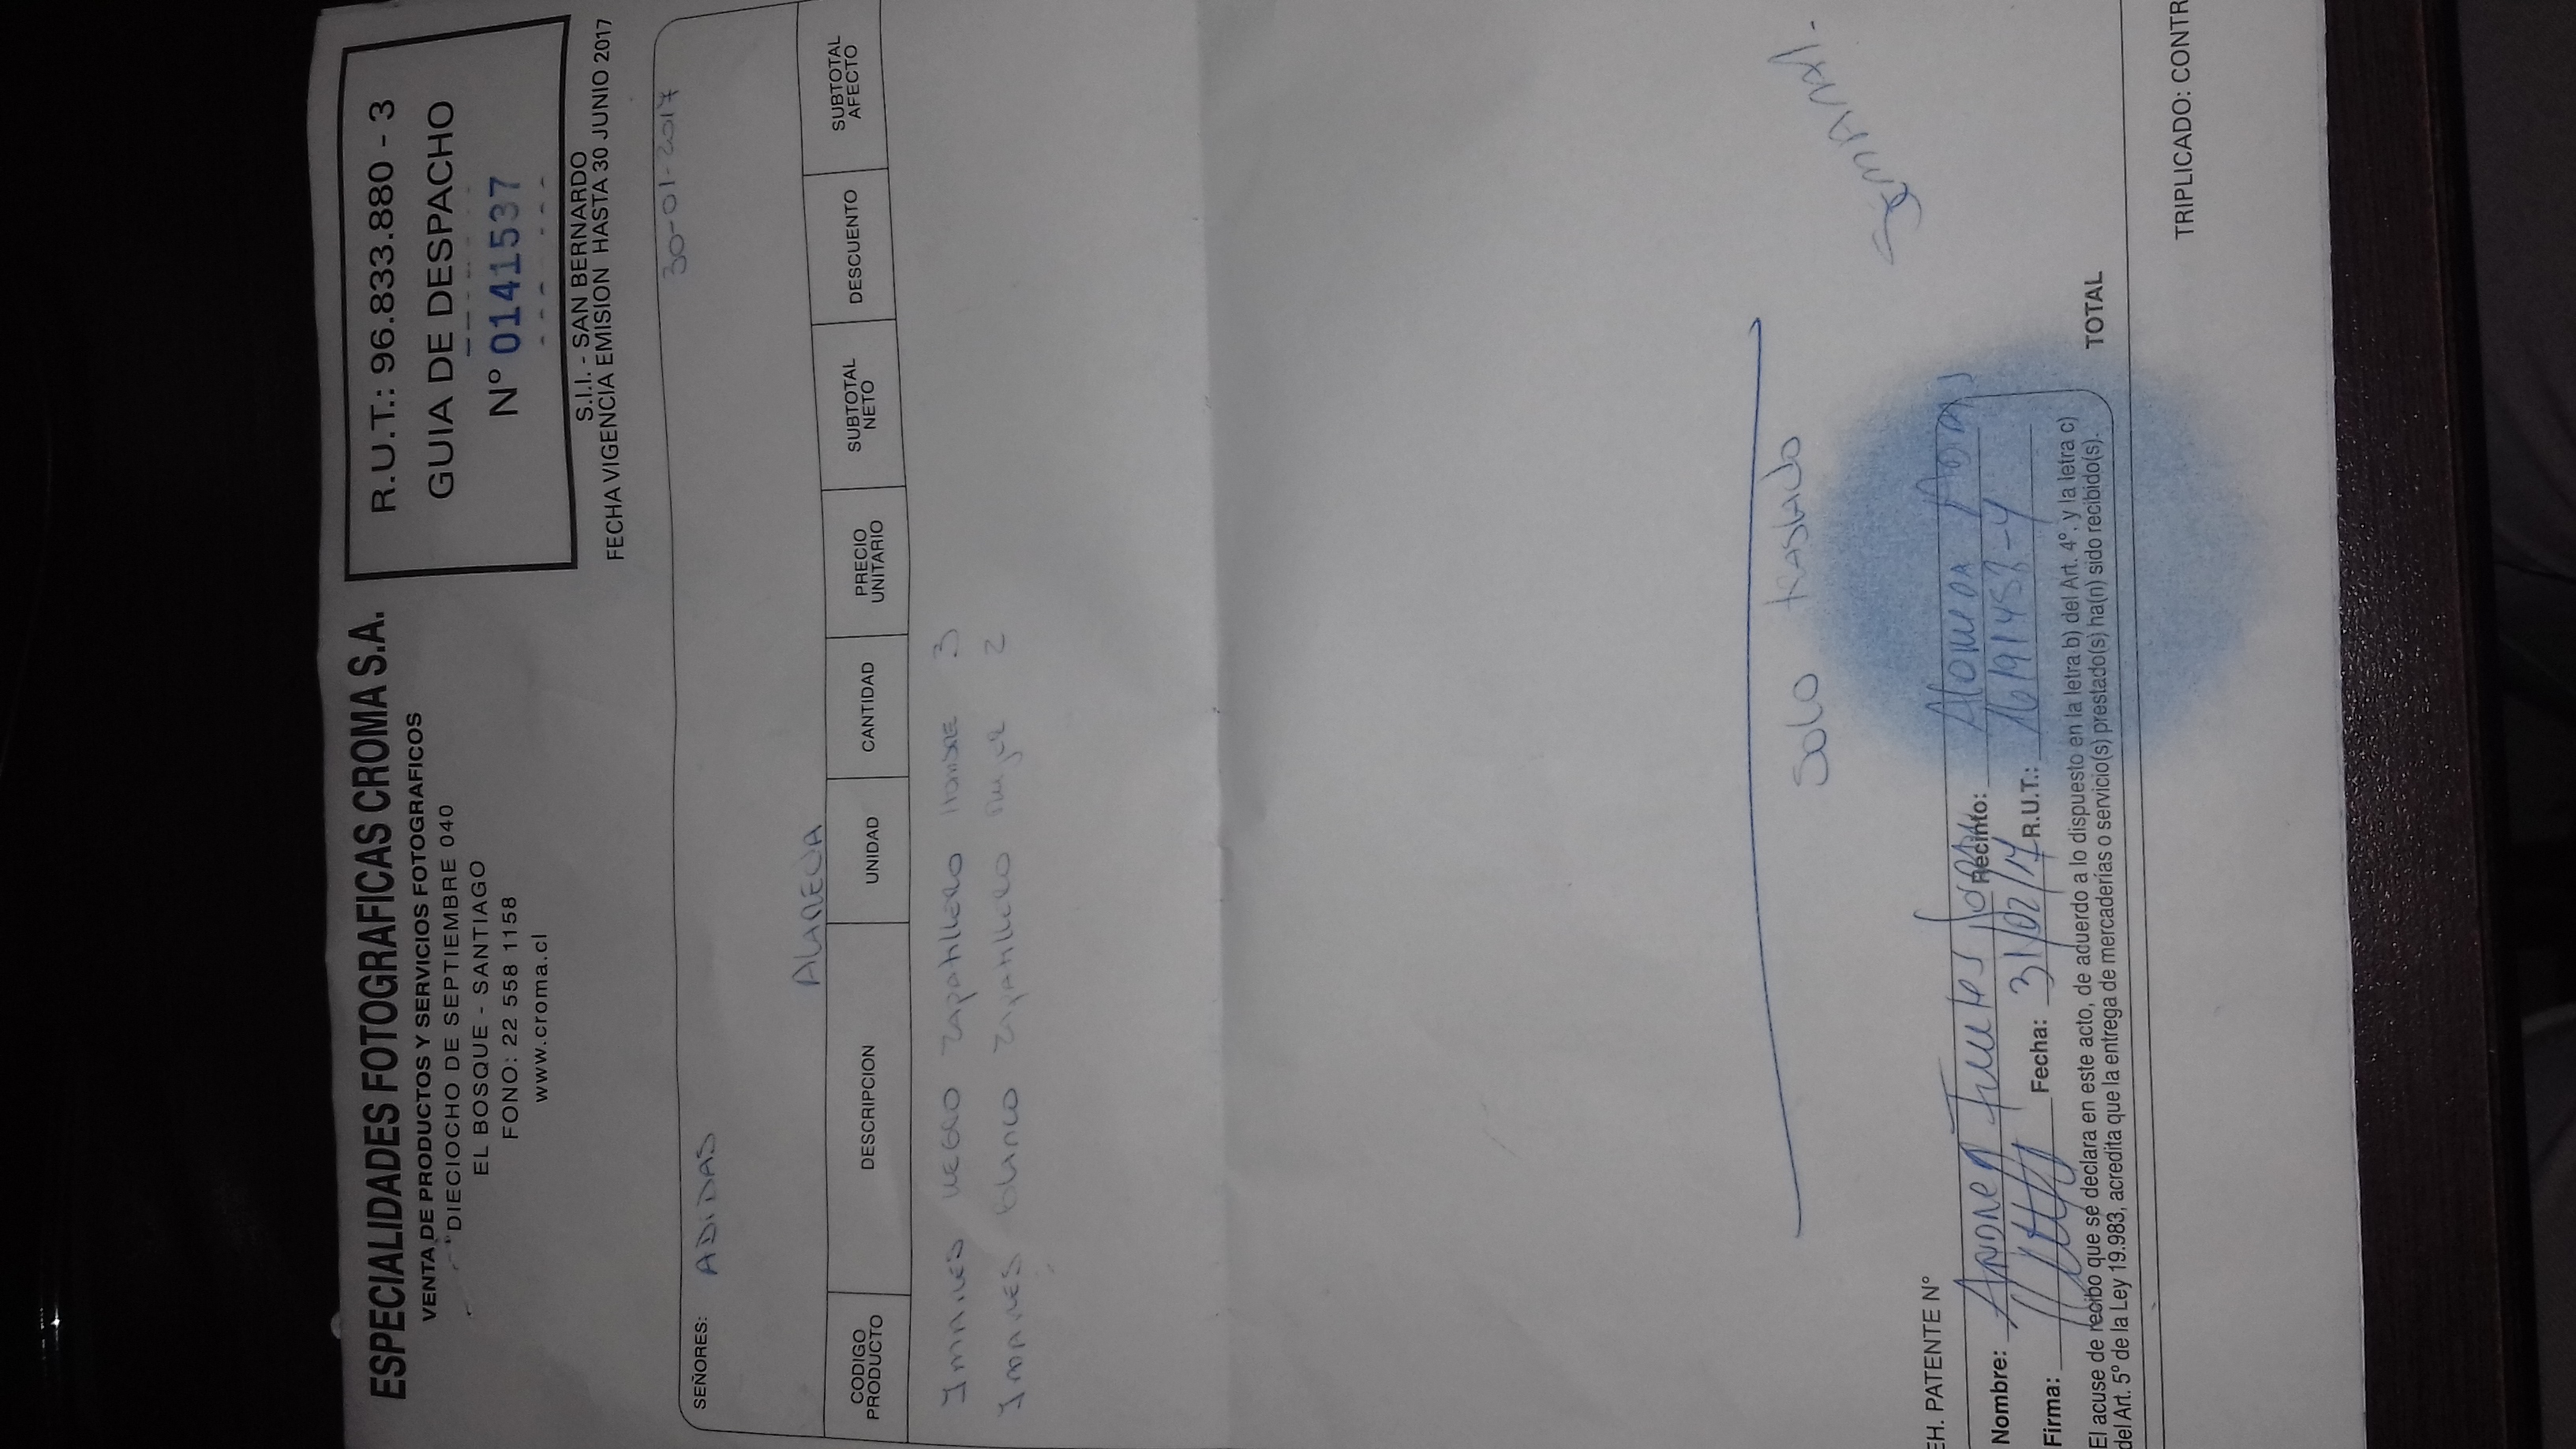 ESPECIALIDADES FOTOGRAFICAS CROMA S.A.
VENTA DE PRODUCTOS Y SERVICIOS FOTOGRAFICOS
DIECIOCHO DE SEPTIEMBRE 040
EL BOSQUE - SANTIAGO
FONO: 22 558 1158
www.croma.cl
R.U.T.: 96.833.880 - 3
GUIA DE DESPACHO
Nº 0141537
S.I.I. - SAN BERNARDO
FECHA VIGENCIA EMISION HASTA 30 JUNIO 2017
30-01-2017
SEÑORES: ADIDAS
CODIGO PRODUCTO DESCRIPCION UNIDAD CANTIDAD PRECIO UNITARIO SUBTOTAL NETO DESCUENTO SUBTOTAL AFECTO
NEGRO Zapatillero HOMBRE 3
Blanco Zapatillero Mujer 2
SOLO traslado
SEMANAL
EH. PATENTE Nº
Nombre: Andrea Fuentes Recinto: Alameda
Firma: Fecha: 31/02/17 R.U.T.:
El acuse de recibo que se declara en este acto, de acuerdo a lo dispuesto en la letra b) del Art. 4º, y la letra c)
del Art. 5º de la Ley 19.983, acredita que la entrega de mercaderías o servicio(s) prestado(s) ha(n) sido recibido(s).
TOTAL
TRIPLICADO: CONTR